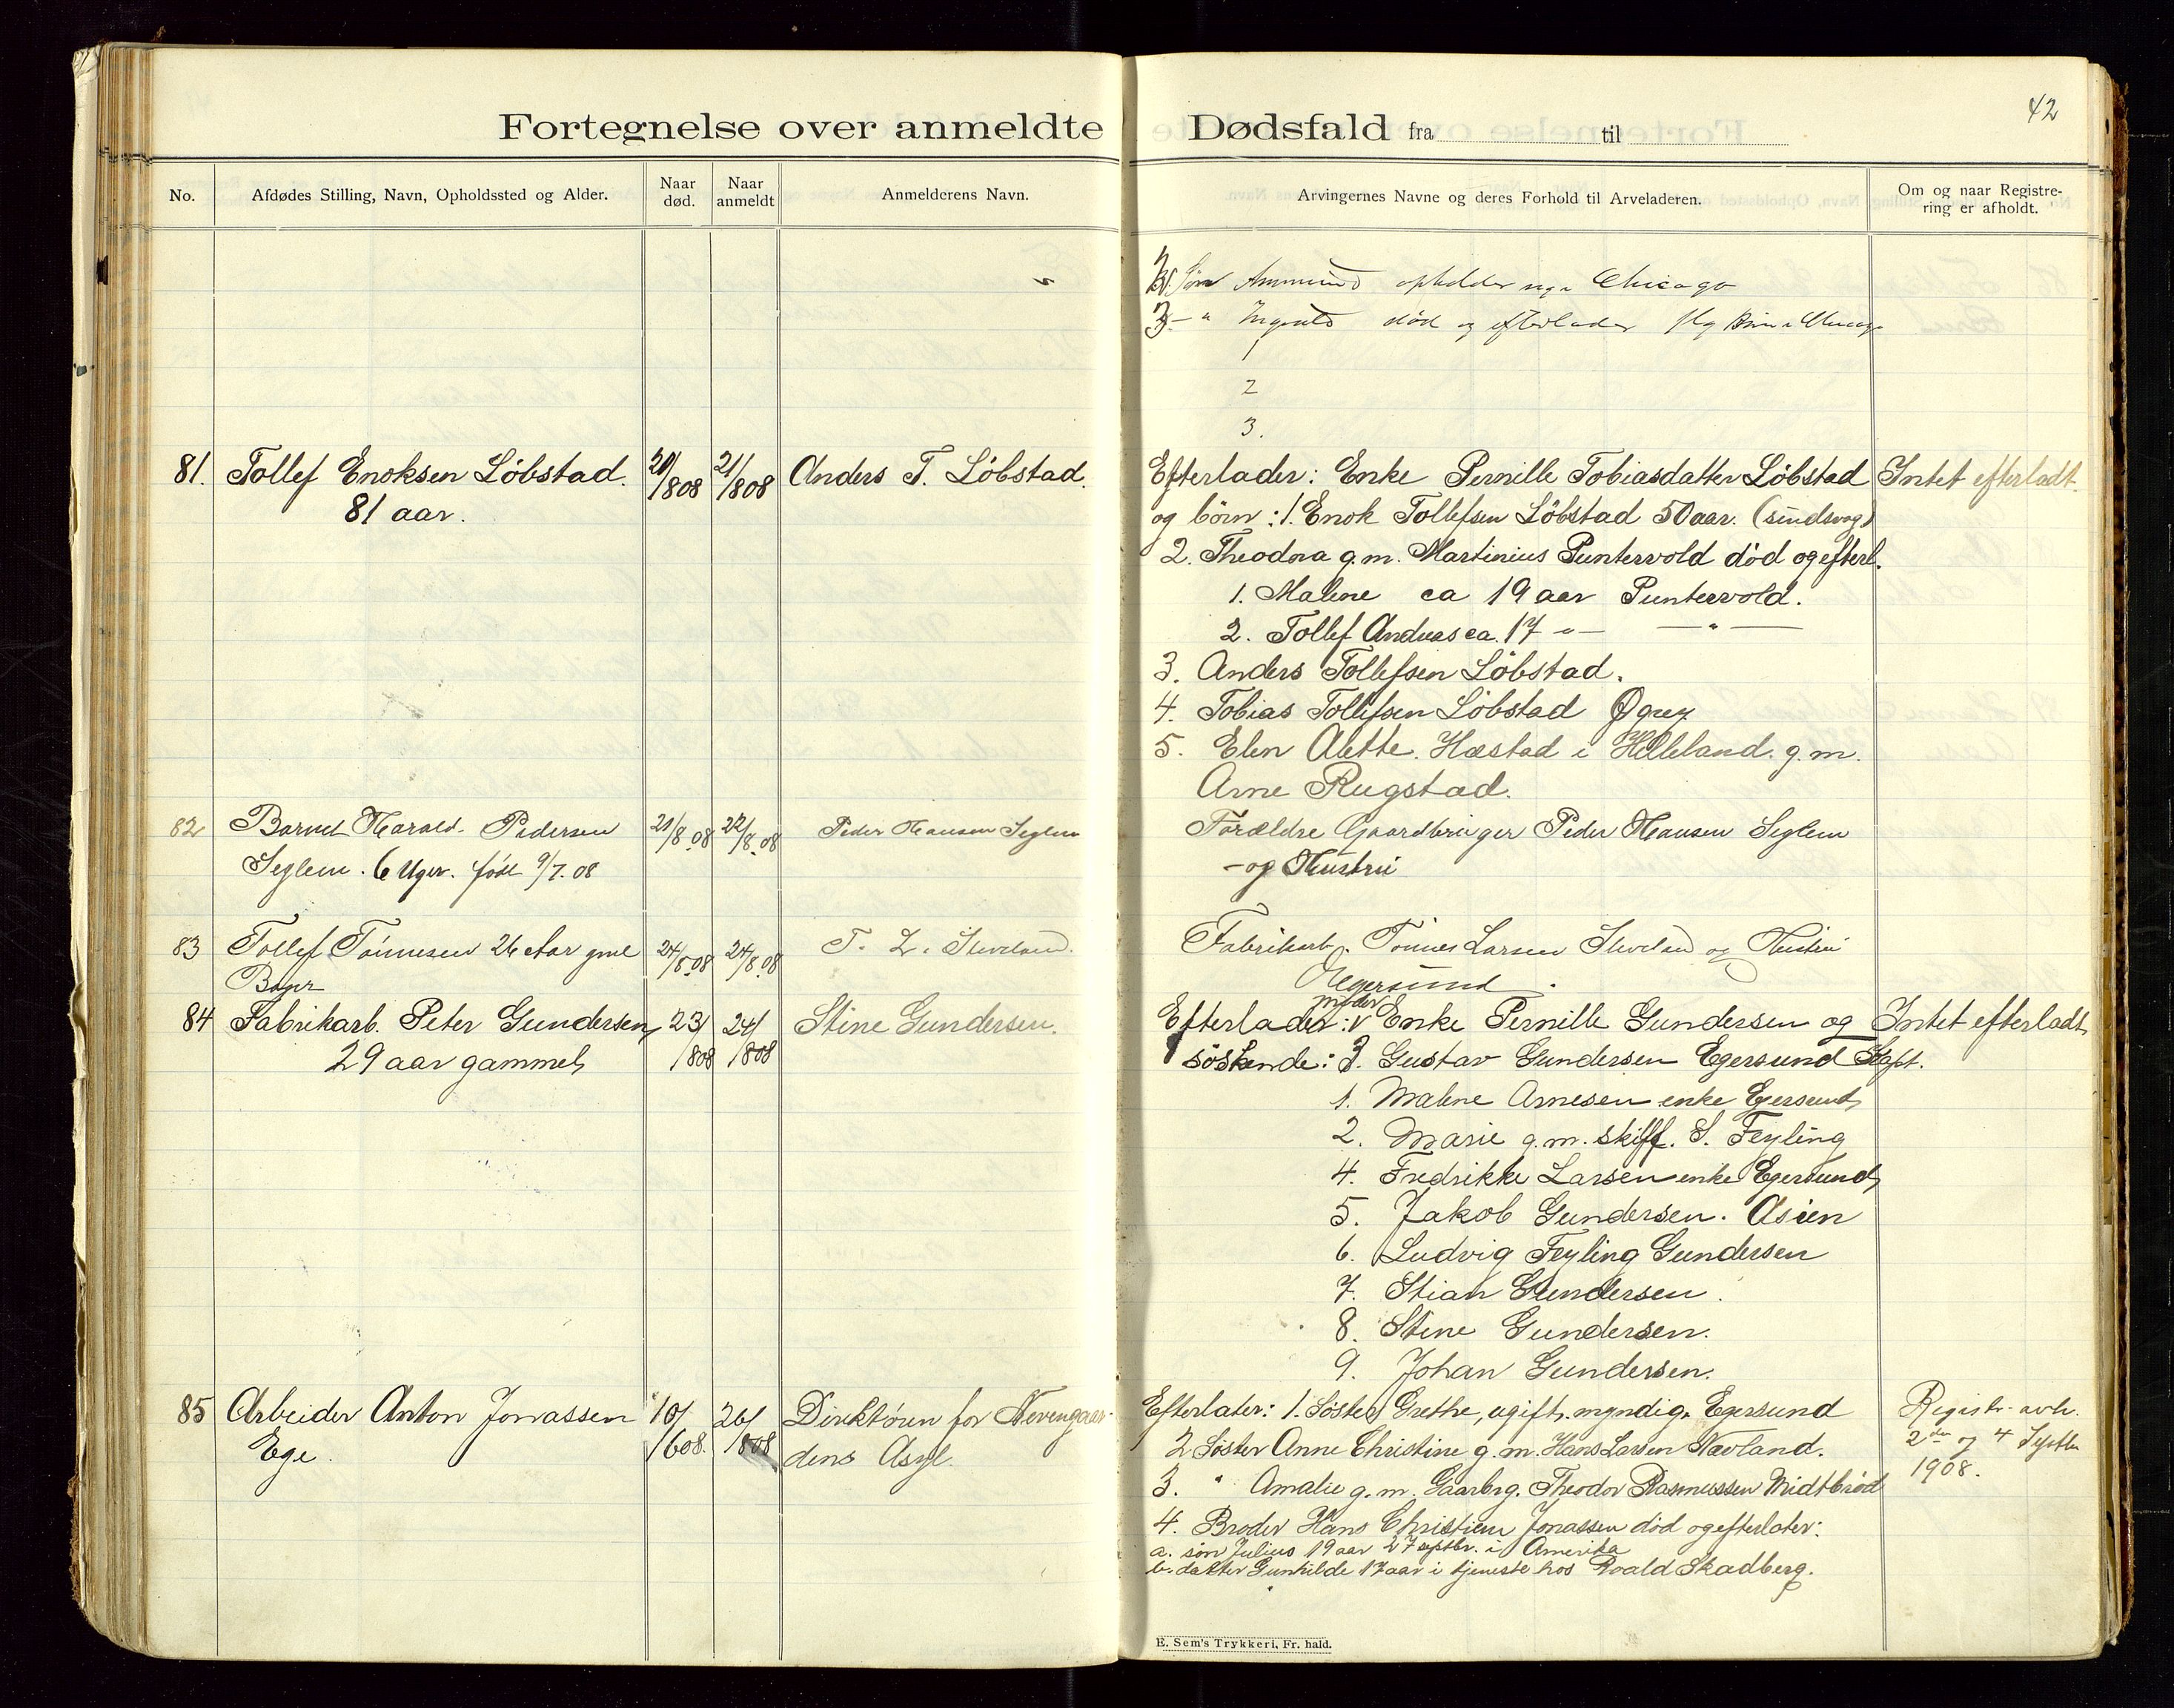 42
Fortegnelse over anmeldte Dødsfald fra til
No.
Afdødes Stilling, Navn, Opholdssted og Alder.
Naar død.
Naar anmeldt
Anmelderens Navn.
Arvingernes Navne og deres Forhold til Arveladeren.
Om og naar Registrering er afholdt.
Søn Ammund opholder Chicago
3 - " død og efterlader
1
2
3.
81. Tollef Enoksen Löbstad. 20/808 21/808 Anders T. Löbstad.
81 aar.
Efterlader: Enke Pernille Tobiasdatter Löbstad Intet efterladt.
og börn: 1. Enok Tollefsen Löbstad 50 aar. (sindsvag)
2. Theodora g.m. Martinius Puntervold död og efterl.
1. Malene ca 19 aar Puntervold.
2. Tollef Andreas ca. 17 -"- -"-
3. Anders Tollefsen Löbstad.
4. Tobias Tollefsen Löbstad Øgrey
5. Elen Alette. Hæstad i Helleland. g.m.
Arne Rugstad.
82 Barnet Harald Pedersen 21/8.08 22/8.08 Peder Hansen Seglem
Seglem. 6 Uger. født 9/7.08
Forældre Gaardbruger Peder Hansen Seglem
- og Hustru
83 Tollef Tönnesen 26 Aar gml 24/8.08 24/8.08 T. L.
Fabrikarb. Tönnes Larsen og Hustru
Egersund.
84 Fabrikarb. Peter Gundersen 23/808 24/808 Stine Gundersen.
29 aar gammel
moder
Efterlader: v Enke Pernille Gundersen og Intet efterladt
söskende: 3. Gustav Gundersen Egersund Kapt.
1. Malene Arnesen enke Egersund
2. Marie g.m. skiff. S. Feyling
4. Fredrikke Larsen enke Egersund
5. Jakob Gundersen. Asien
6. Ludvig Feyling Gundersen
7. Stian Gundersen.
8. Stine Gundersen.
9. Johan Gundersen.
85 Arbeider Anton Jonassen 10/608. 26/808 Direktören for Nevengaar-
Ege. dens Asyl.
Efterlater: 1. Söster Grethe, ugift. myndig. Egersund
2 Söster Anne Christine g.m. Hans Larsen Nævland.
3. " Amalie g.m. Gaarbrg. Theodor Rasmussen Midtbröd
4. Broder Hans Christian Jonassen död og efterlater:
a. sön Julius 19 aar 27 septbr. i Amerika
b. datter Gunhilde 17 aar i tjeneste hos Roald Skadberg.
Registr. avh.
2den og 4 Septbr
1908.
E. Sem's Trykkeri, Fr. hald.